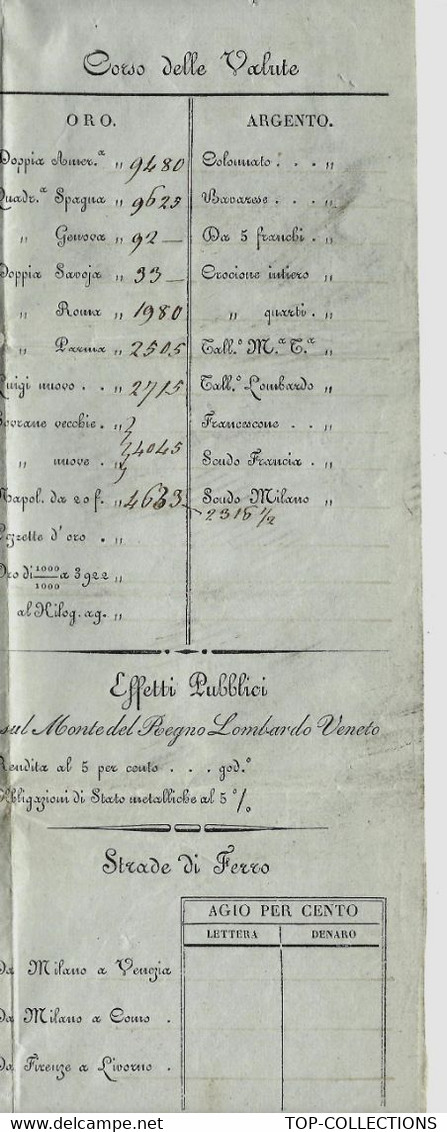 Corso delle Valute
ORO.
Doppia Amer.ª „ 9480
Quadr.ª Spagna „ 9625
„ Genova „ 92 —
Doppia Savoja „ 33 —
„ Roma „ 1980
„ Parma „ 2505
Luigi nuovo . . „ 2715
Sovrane vecchie . „
„ nuove . „ 4045
Napol. da 20 f. „ 4633
2316 1/2
Pezzette d'oro . „
Oro di 1000/1000 a 3922 „
al Kilog. ag. „
ARGENTO.
Colonnato . . . „
Bavarese . . . „
Da 5 franchi . „
Crocione intiero „
„ quarti . „
Tall.º M.ª T.ª „
Tall.º Lombardo „
Francescone . . „
Scudo Francia . „
Scudo Milano „
Effetti Pubblici
sul Monte del Regno Lombardo Veneto
Rendita al 5 per cento . . . god.º
Obbligazioni di Stato metalliche al 5 º/o
Strade di Ferro
AGIO PER CENTO
LETTERA DENARO
Da Milano a Venezia
Da Milano a Como .
Da Firenze a Livorno .
TOP-COLLECTIONS